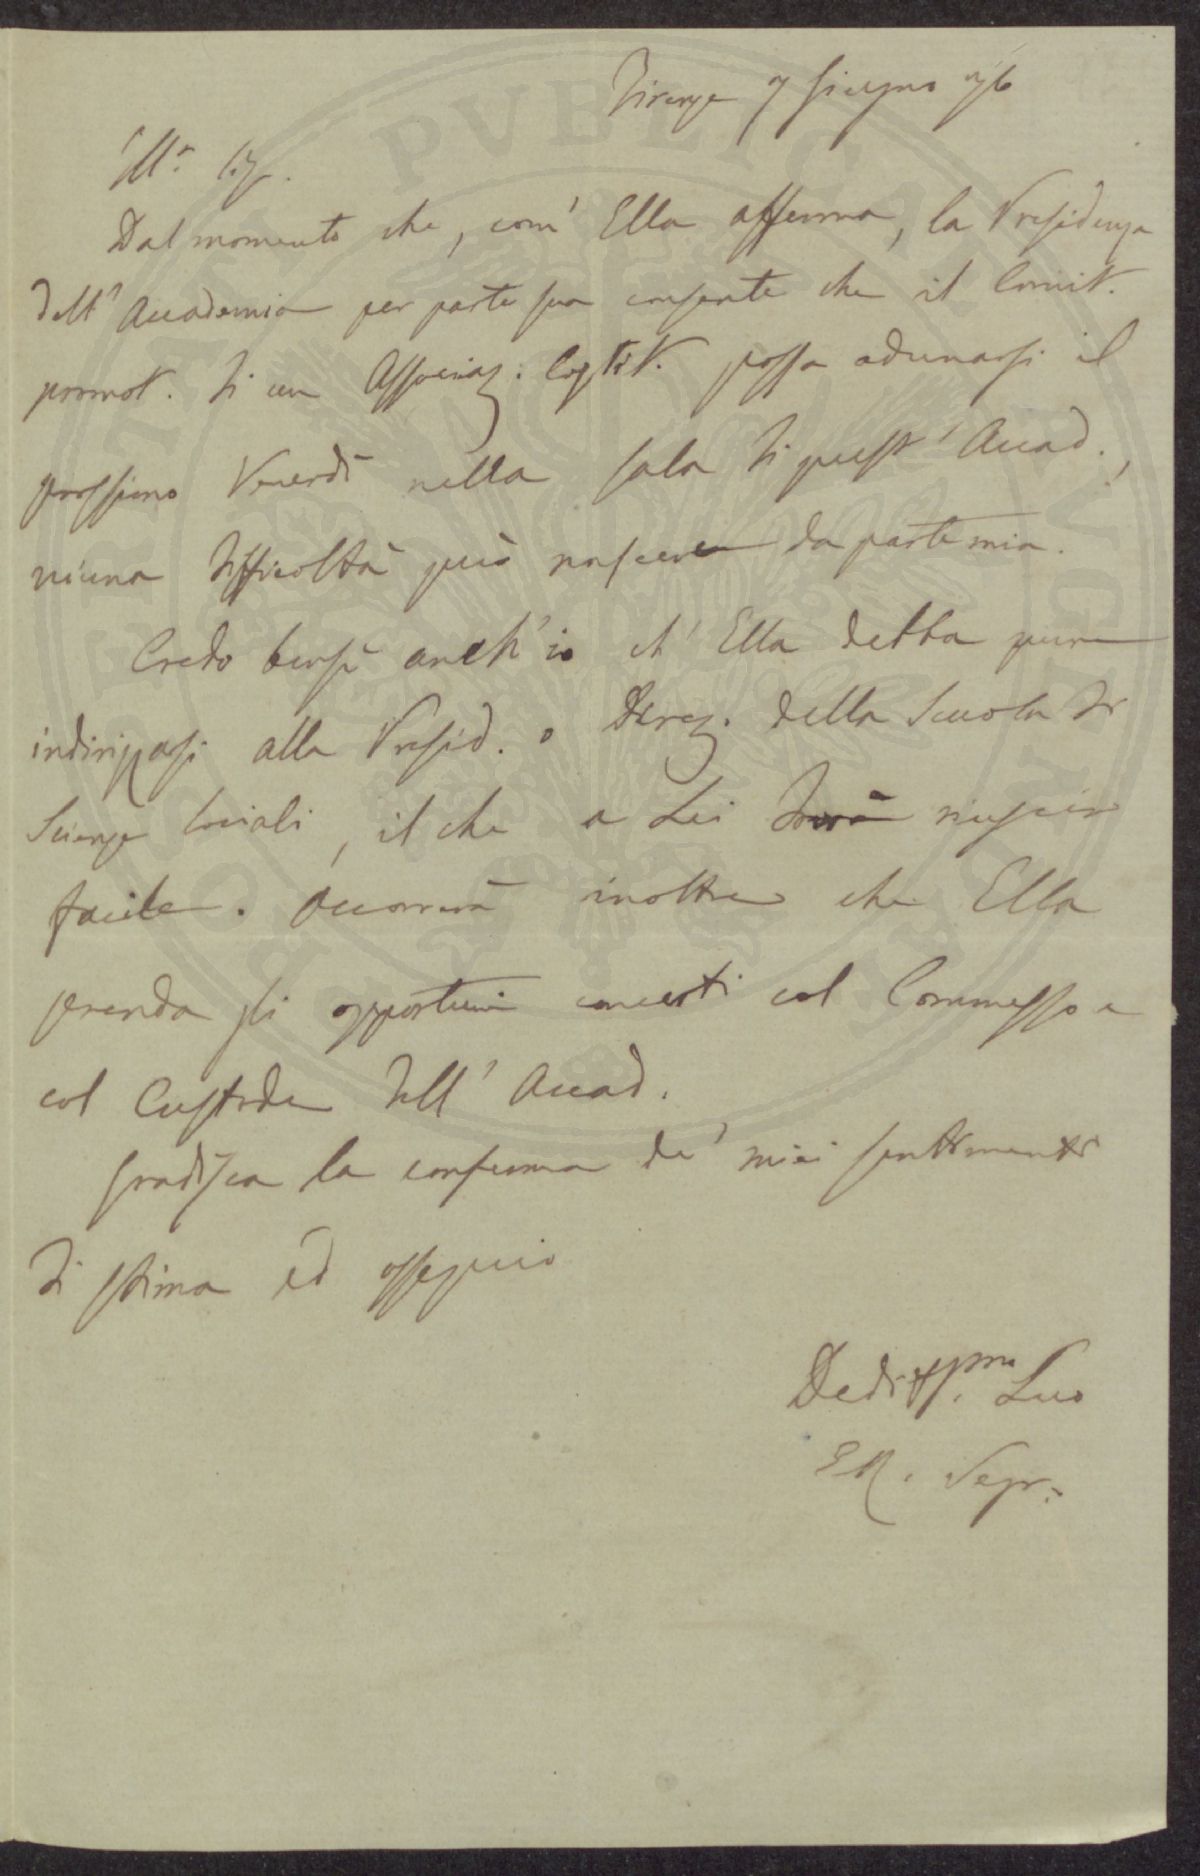 Firenze 7 Giugno 76
Ill.º Sig.
Dal momento che, com' Ella afferma, la Presidenza
dell' Accademia per parte sua consente che il Comit.
promot. di un Associaz. Costit. possa adunarsi il
prossimo Venerdì nella sala di quest' Accad.,
niuna difficoltà può nascere da parte mia.
Credo bensì anch' io ch' Ella debba pure
indirizzarsi alla Presid. o Direz. della Scuola di
Scienze Sociali, il che a Lei dovrà riuscir
facile. Occorrerà inoltre che Ella
prenda gli opportuni concerti col Commesso e
col Custode dell' Accad.
Gradisca la conferma de' miei sentimenti
di stima ed ossequio
Dediss.mo Suo
Segr.